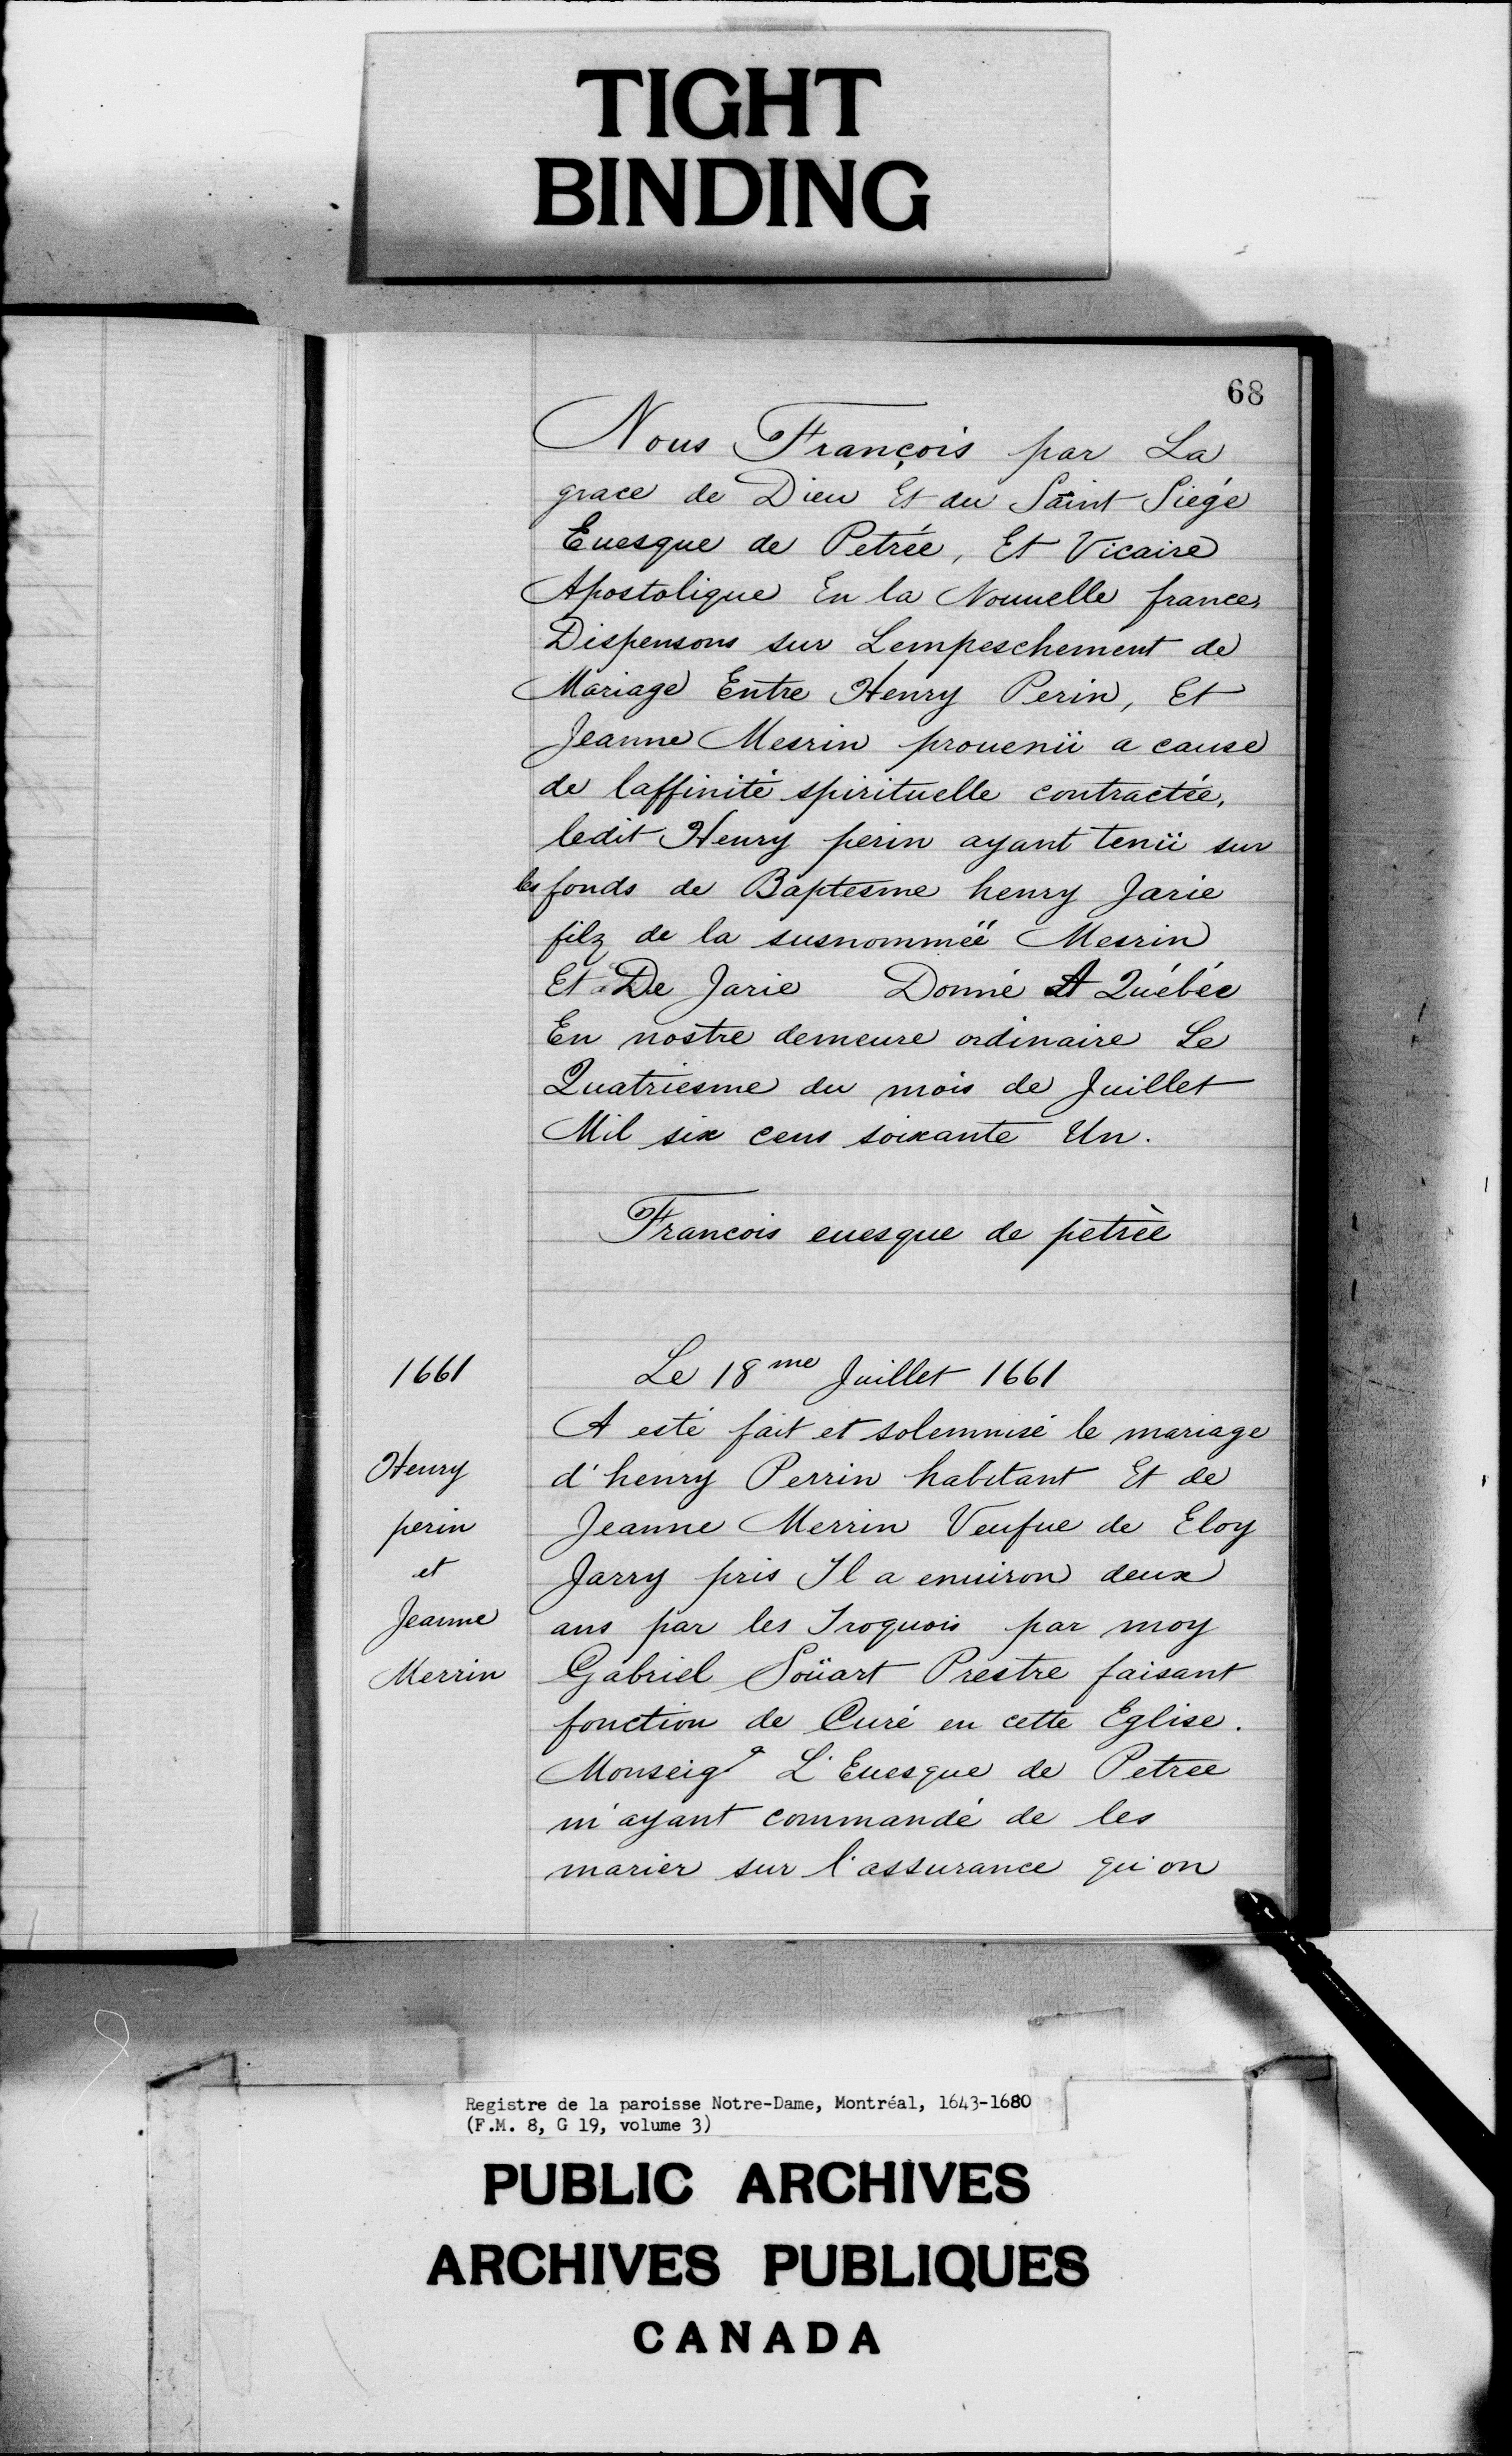 TIGHT
BINDING
68
Nous François par La
grace de Dieu Et du Saint Siége
Euesque de Petrée, Et Vicaire
Apostolique En la Nouuelle france,
Dispensons sur Lempeschement de
Mariage Entre Henry Perin, Et
Jeanne Merrin prouenü a cause
de laffinité spirituelle contractée,
ledit Henry perin ayant tenü sur
les fonds de Baptesme henry Jarie
filz de la susnommëë Merrin
Et De Jarie Donné A Québéc
En nostre demeure ordinaire Le
Quatriesme du mois de Juillet
Mil six cens soixante Un.
Francois euesque de petrèe
1661
Le 18me Juillet 1661
A esté fait et solemnisé le mariage
Henry
d'henry Perrin habitant Et de
perin
Jeanne Merrin Veufue de Eloy
et
Jarry pris Il a enuiron deux
Jeanne
ans par les Iroquois par moy
Merrin
Gabriel Soüart Prestre faisant
fonction de Curé en cette Eglise.
Monseigr L'Euesque de Petree
m'ayant commandé de les
marier sur l'assurance qu'on
Registre de la paroisse Notre-Dame, Montréal, 1643-1680
(F.M. 8, G 19, volume 3)
PUBLIC ARCHIVES
ARCHIVES PUBLIQUES
CANADA